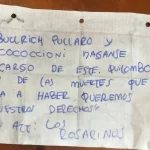 BULLRICH PULLARO Y
COCOCCIONI HAGANSE
CARGO DE ESTE QUILOMBO
DE LAS MUERTES QUE
A A HABER QUEREMOS
UESTROS DERECHOS
ATE: LOS
ROSARINOS